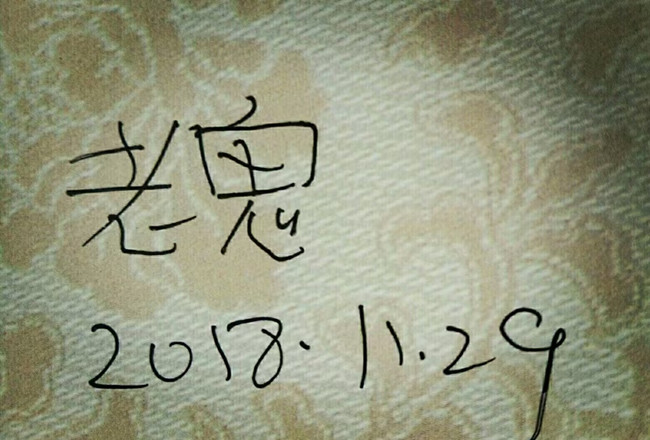 老鬼
2018.11.29